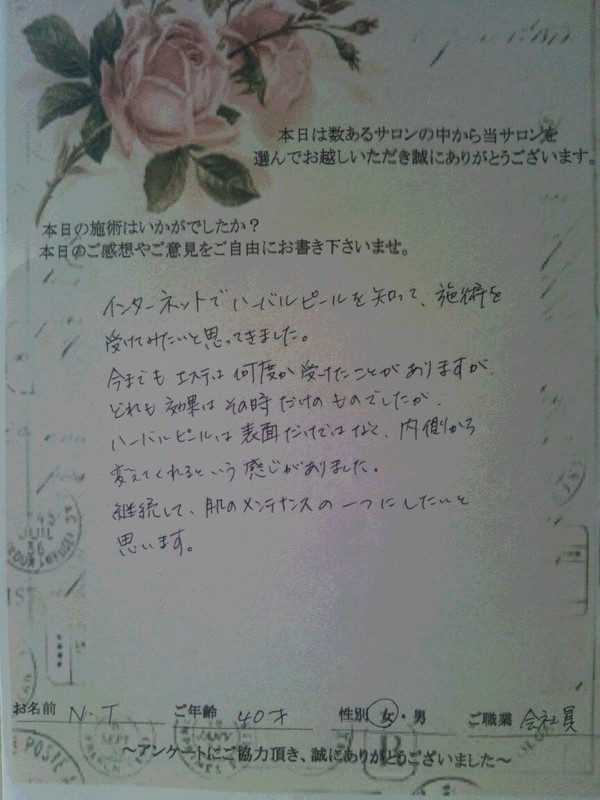 本日は数あるサロンの中から当サロンを
選んでお越しいただき誠にありがとうございます。
本日の施術はいかがでしたか？
本日のご感想やご意見をご自由にお書き下さいませ。
インターネットでハーバルピールを知って、施術を
受けてみたいと思ってきました。
今までも エステは 何度か 受けたことがありますが、
どれも 効果は その時 だけの ものでしたが、
ハーバルピールは 表面だけではなく、内側から
変えてくれるという 感じがありました。
継続して、肌のメンテナンスの 一つに したいと
思います。
JUIL
36
お名前 N・T ご年齢 40才 性別 女・男 ご職業 会社員
～アンケートにご協力頂き、誠にありがとうございました～